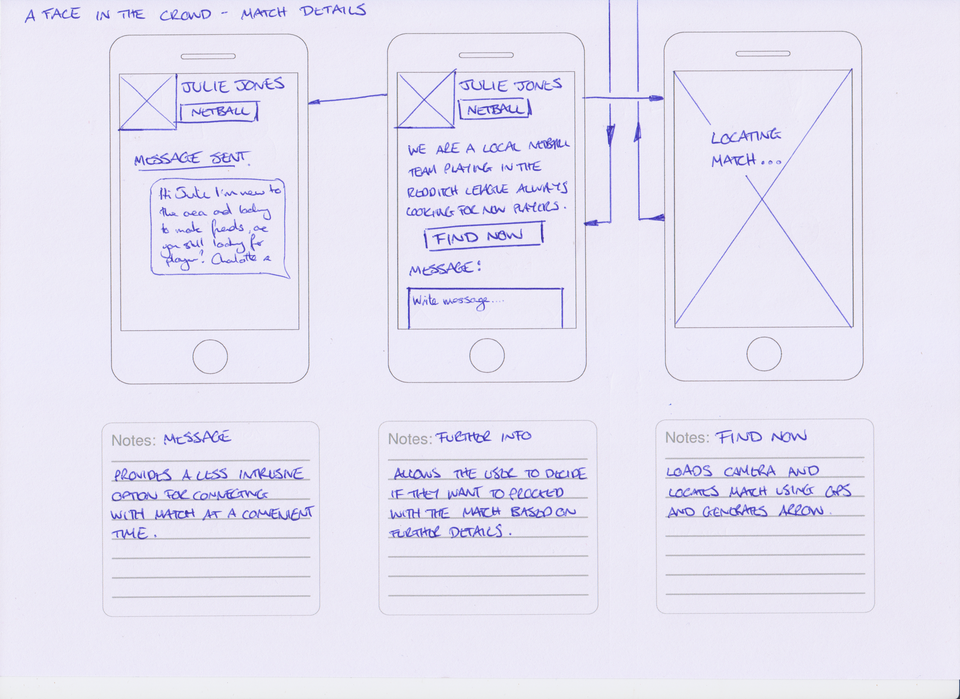 A FACE IN THE CROWD - MATCH DETAILS
JULIE JONES
NETBALL
MESSAGE SENT.
Hi Julie I'm new to
the area and looking
to make friends, are
you still looking for
players? Charlotte x
JULIE JONES
NETBALL
WE ARE A LOCAL NETBALL
TEAM PLAYING IN THE
REDDITCH LEAGUE ALWAYS
LOOKING FOR NEW PLAYERS.
FIND NOW
MESSAGE:
Write message....
LOCATING
MATCH...
Notes: MESSAGE
PROVIDES A LESS INTRUSIVE
OPTION FOR CONNECTING
WITH MATCH AT A CONVENIENT
TIME.
Notes: FURTHER INFO
ALLOWS THE USER TO DECIDE
IF THEY WANT TO PROCEED
WITH THE MATCH BASED ON
FURTHER DETAILS.
Notes: FIND NOW
LOADS CAMERA AND
LOCATES MATCH USING GPS
AND GENERATES ARROW.